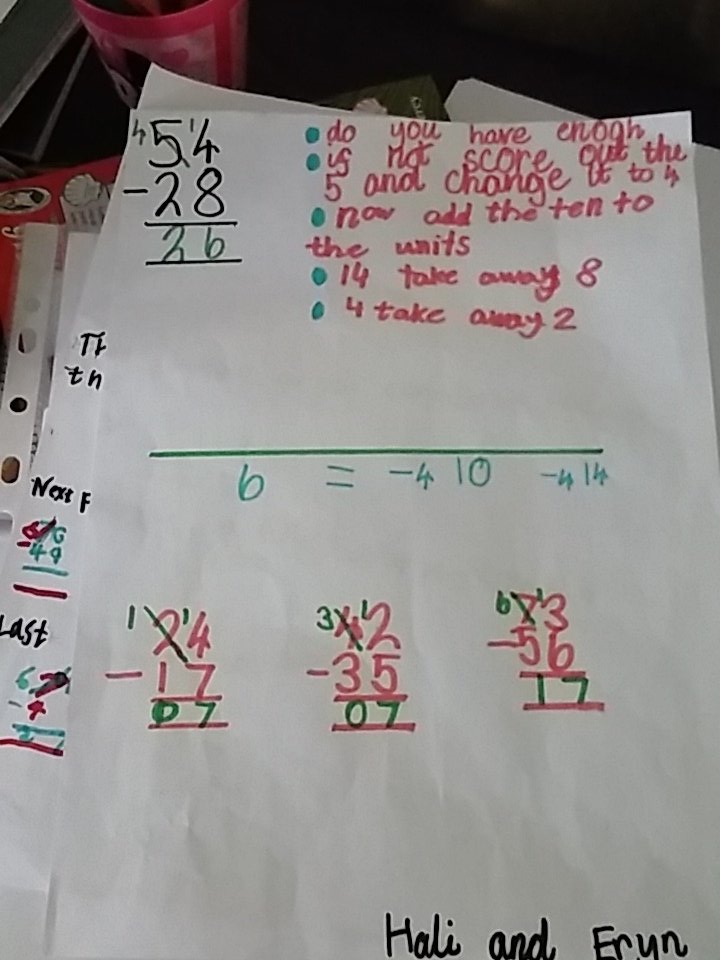 4 5 14
- 28
26
do you have enogh
if not score out the
5 and change it to 4
now add the ten to
the units
14 take away 8
4 take away 2
th
Next F
49
Last
6 = -4 10 -4 14
1 2 14
- 17
07
3 4 12
- 35
07
6 7 13
- 56
17
Hali and Eryn